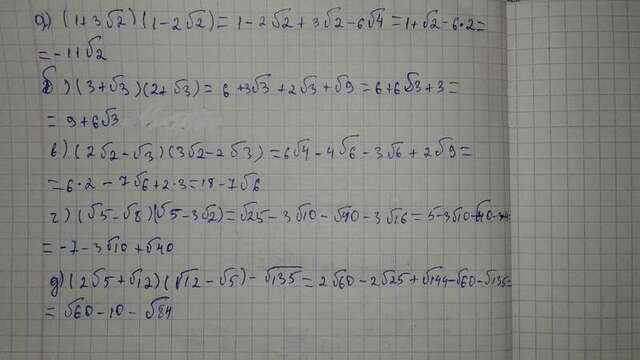 а) (1+3√2)(1-2√2)=1-2√2+3√2-6√4=1+√2-6·2=
=-11√2
б) (3+√3)(2+√3)=6+3√3+2√3+√9=6+6√3+3=
=9+6√3
в) (2√2-√3)(3√2-2√3)=6√4-4√6-3√6+2√9=
=6·2-7√6+2·3=18-7√6
г) (√5-√8)(√5-3√2)=√25-3√10-√40-3√16=5-3√10-√40-
=-7-3√10+√40
д) (2√5+√12)(√12-√5)-√135=2√60-2√25+√144-√60-√135=
=√60-10-√84